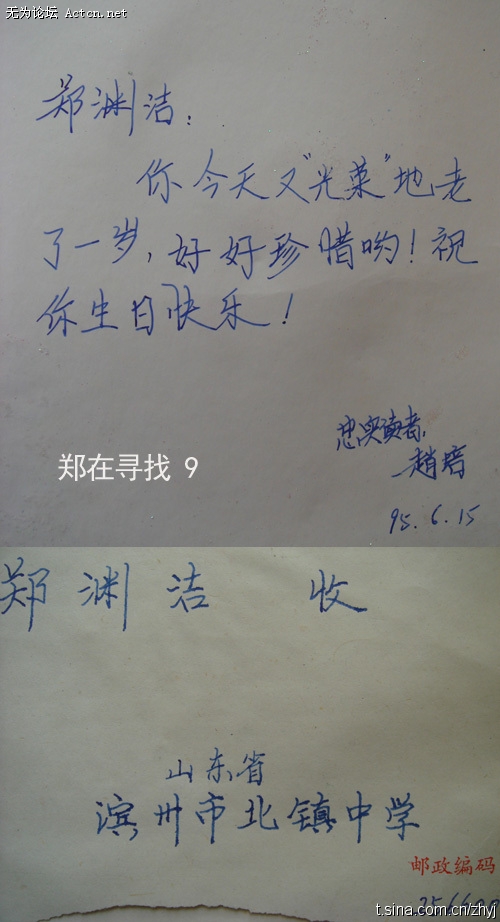 无为论坛 Actcn.net
郑渊洁：
你今天又“光荣”地老
了一岁，好好珍惜哟！祝
你生日快乐！
忠实读者：
赵培
95.6.15
郑在寻找 9
郑渊洁 收
山东省
滨州市北镇中学
邮政编码
t.sina.com.cn/zhyj